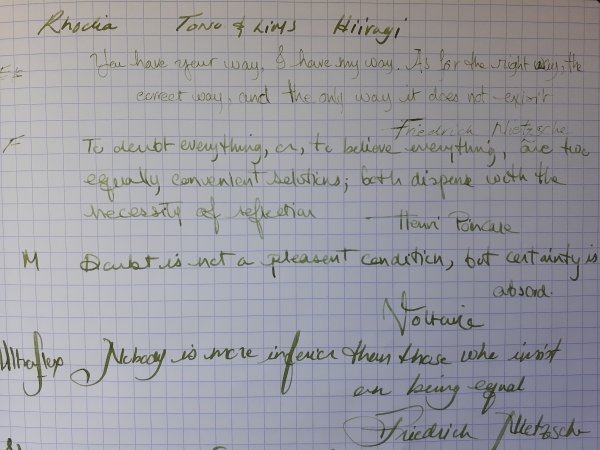 Rhodia Tono & Lims Hiiragi
EF You have your way, I have my way. As for the right way, the
correct way, and the only way it does not exist
Friedrich Nietzsche
F To doubt everything, or, to believe everything, are two
equally convenient solutions; both dispense with the
necessity of reflection
Henri Poincare
M Doubt is not a pleasent condition, but certainty is
absord.
Voltaire
Ultraflex Nobody is more inferior than those who insist
on being equal
Friedrich Nietzsche